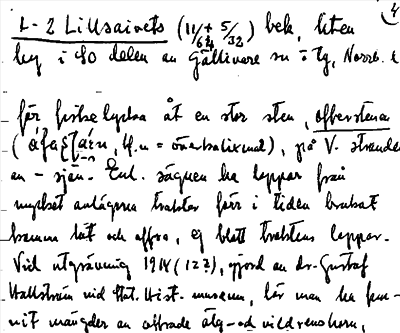 4
L-2 Lillsaivets (11/64 + 5/32) bek, liten
by i SO delen av Gällivare sn i Lg, Norrb. l
för fiskelycka åt en stor sten, offerstenen
på V. stranden
av - sjön. Enl. sägnen ha lappar från
mycket avlägsna trakter förr i tiden brukat
komma hit och offra, ej blott traktens lappar.
Vid utgrävning 1914 (12?), gjord av dr. Gustaf
Hallström vid Stat. Hist. museum, lär man ha fun-
nit mängder av offrade älg- och vildrenshorn,